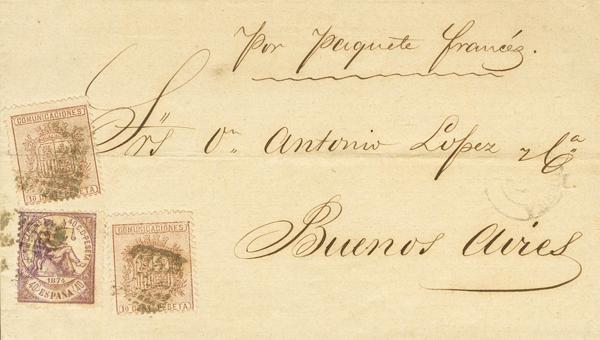 Por Paquete francés.
Srs Dn. Antonio Lopez y Ca
Buenos Aires
COMUNICACIONES
10 CENT PESETA
1874
40 ESPAÑA 40
COMUNICACIONES
10 CENT PESETA